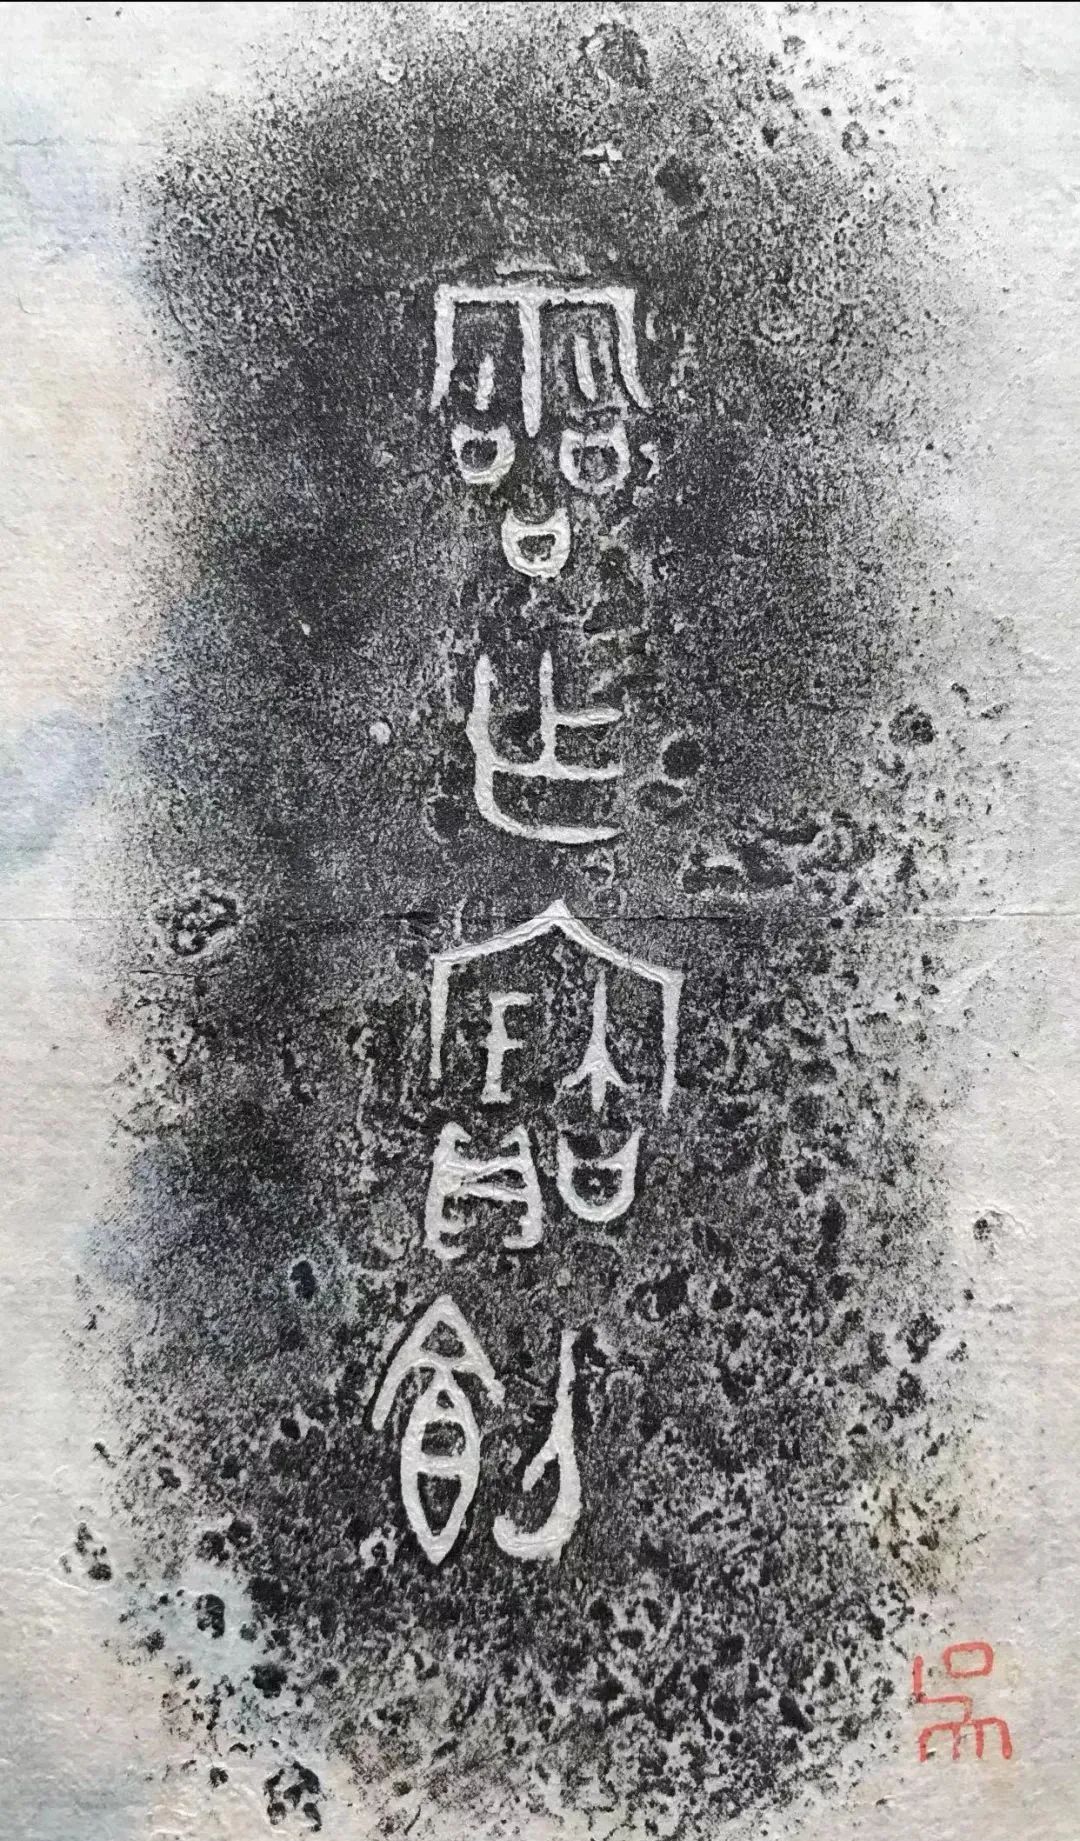 霝乍寶飤